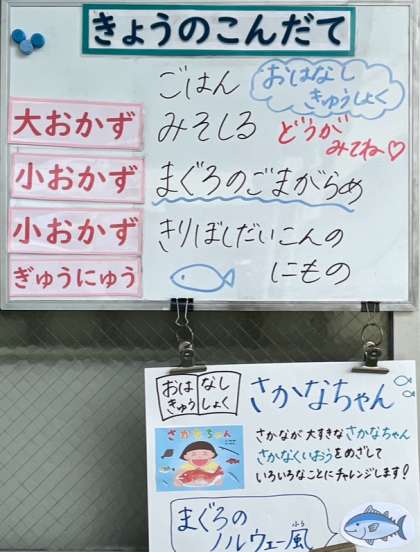 きょうのこんだて
ごはん
おはなし
きゅうしょく
大おかず
みそしる
どうが
みてね♡
小おかず
まぐろのごまがらめ
小おかず
きりぼしだいこんの
にもの
ぎゅうにゅう
おはなし
きゅうしょく
さかなちゃん
さかなが大すきなさかなちゃん
さかなくいおうをめざして
いろいろなことにチャレンジします!
さかなちゃん
まぐろの
ノルウェー風
ふう